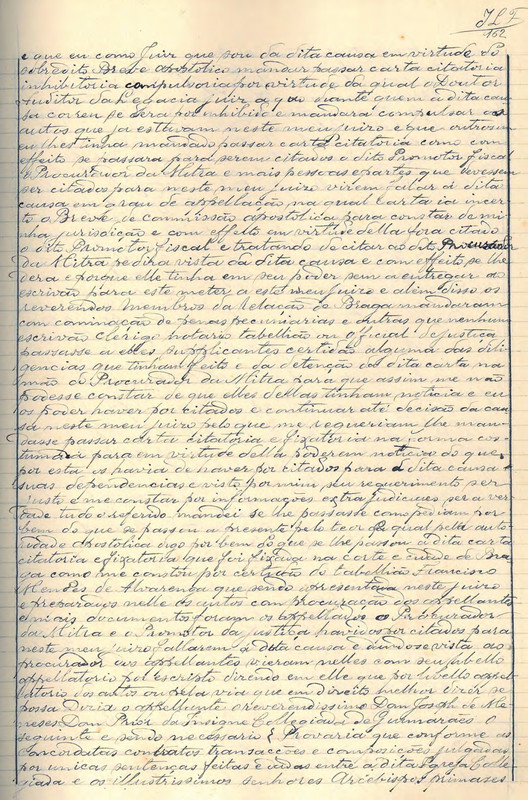 J L F
162
e que eu como Juiz que sou da dita causa em virtude do
sobredito Breve apostolico mandar passar carta citatoria
inhibitoria compulsoria por virtude da qual o Doutor
Auditor da Legacia juiz a quo diante quem a dita cau
sa correu se dera por inhibido e mandara compulsar os
autos que ja estavam neste meu juizo e que outrosim
eu lhes tinha mandado passar carta citatoria como com
effeito se passara para serem citados o dito Promotor Fiscal
e Procurador da Mitra e mais pessoas e partes que devessem
ser citados para neste meu juizo virem fallar á dita
causa em grau de appellação na qual carta ia incer
to o Breve de commissão apostolica para constar de mi
nha jurisdição e com effeito em virtude della fora citado
o dito Promotor fiscal e tratando de citar ao dito Procurador
da Mitra pedira vista da dita causa e com effeito se lhe
dera e porque elle tinha em seu poder sem a entregar ao
escrivão para este meter a este meu juizo e alem disso os
reverendos membros da Relação de Braga mandaram
com cominação de penas pecuniarias e outras que nenhum
escrivão clerigo notario tabellião ou official de justiça
passasse a elles supplicantes certidão alguma das dili
gencias que tinham feito e da detenção da dita carta na
mão do Procurador da Mitra para que assim me não
podesse constar de que elles dellas tinham noticia e eu
os poder haver por citados e continuar até decisão da cau
sa neste meu juizo pelo que me requeriam lhe man
dasse passar carta citatoria e fixatoria na forma cos
tumada para em virtude della poderem noticiar os que
por esta os havia de haver por citados para a dita causa e
suas dependencias e visto por mim seu requerimento ser
justo e me constar por informações extrajudiciaes ser a ver
dade tudo o referido mandei se lhe passasse como pediam por
bem do que se passou a presente pelo teor da qual pella auto
ridade apostolica digo por bem do que se lhe passou a dita carta
citatoria e fixatoria que foi fixada na corte e cidade de Bra
ga como me constou por certidão do tabellião Francisco
Mendes de Alvarenga que sendo apresentada neste juizo
e preparados nelle os autos com procuração dos appellantes
e mais documentos foram os appellados o Procurador
da Mitra e o Promotor da justiça havidos por citados para
neste meu juizo fallarem á dita causa e dandose vista ao
procurador dos appellantes vieram nelles com seu libello
appellatorio por escripto dizendo em elle que por libello appel
latorio dos autos ou pela via que em direito melhor dizer se
possa dizia o appellante o reverendissimo Dom Joseph de Me
neses Dom Prior da Insigne Collegiada de Guimarães o
seguinte e sendo necessario § Provaria que conforme as
Concordatas contratos transacções e composições julgadas
por unicas sentenças feitas e dadas entre a dita Igreja Colle
giada e os illustrissimos senhores Arcebispos primases